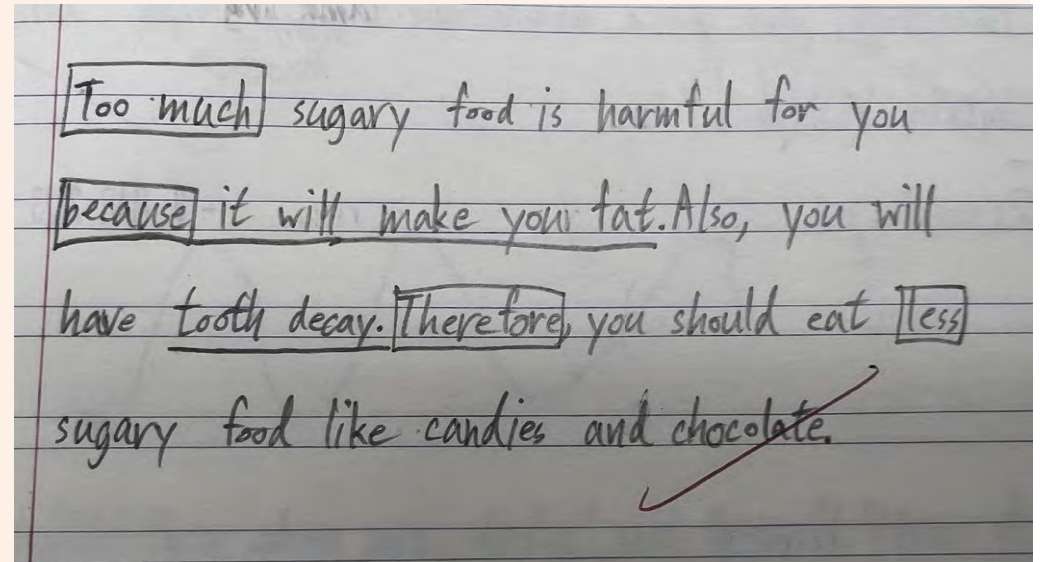 Too much sugary food is harmful for you
because it will make you fat. Also, you will
have tooth decay. Therefore, you should eat less
sugary food like candies and chocolate.